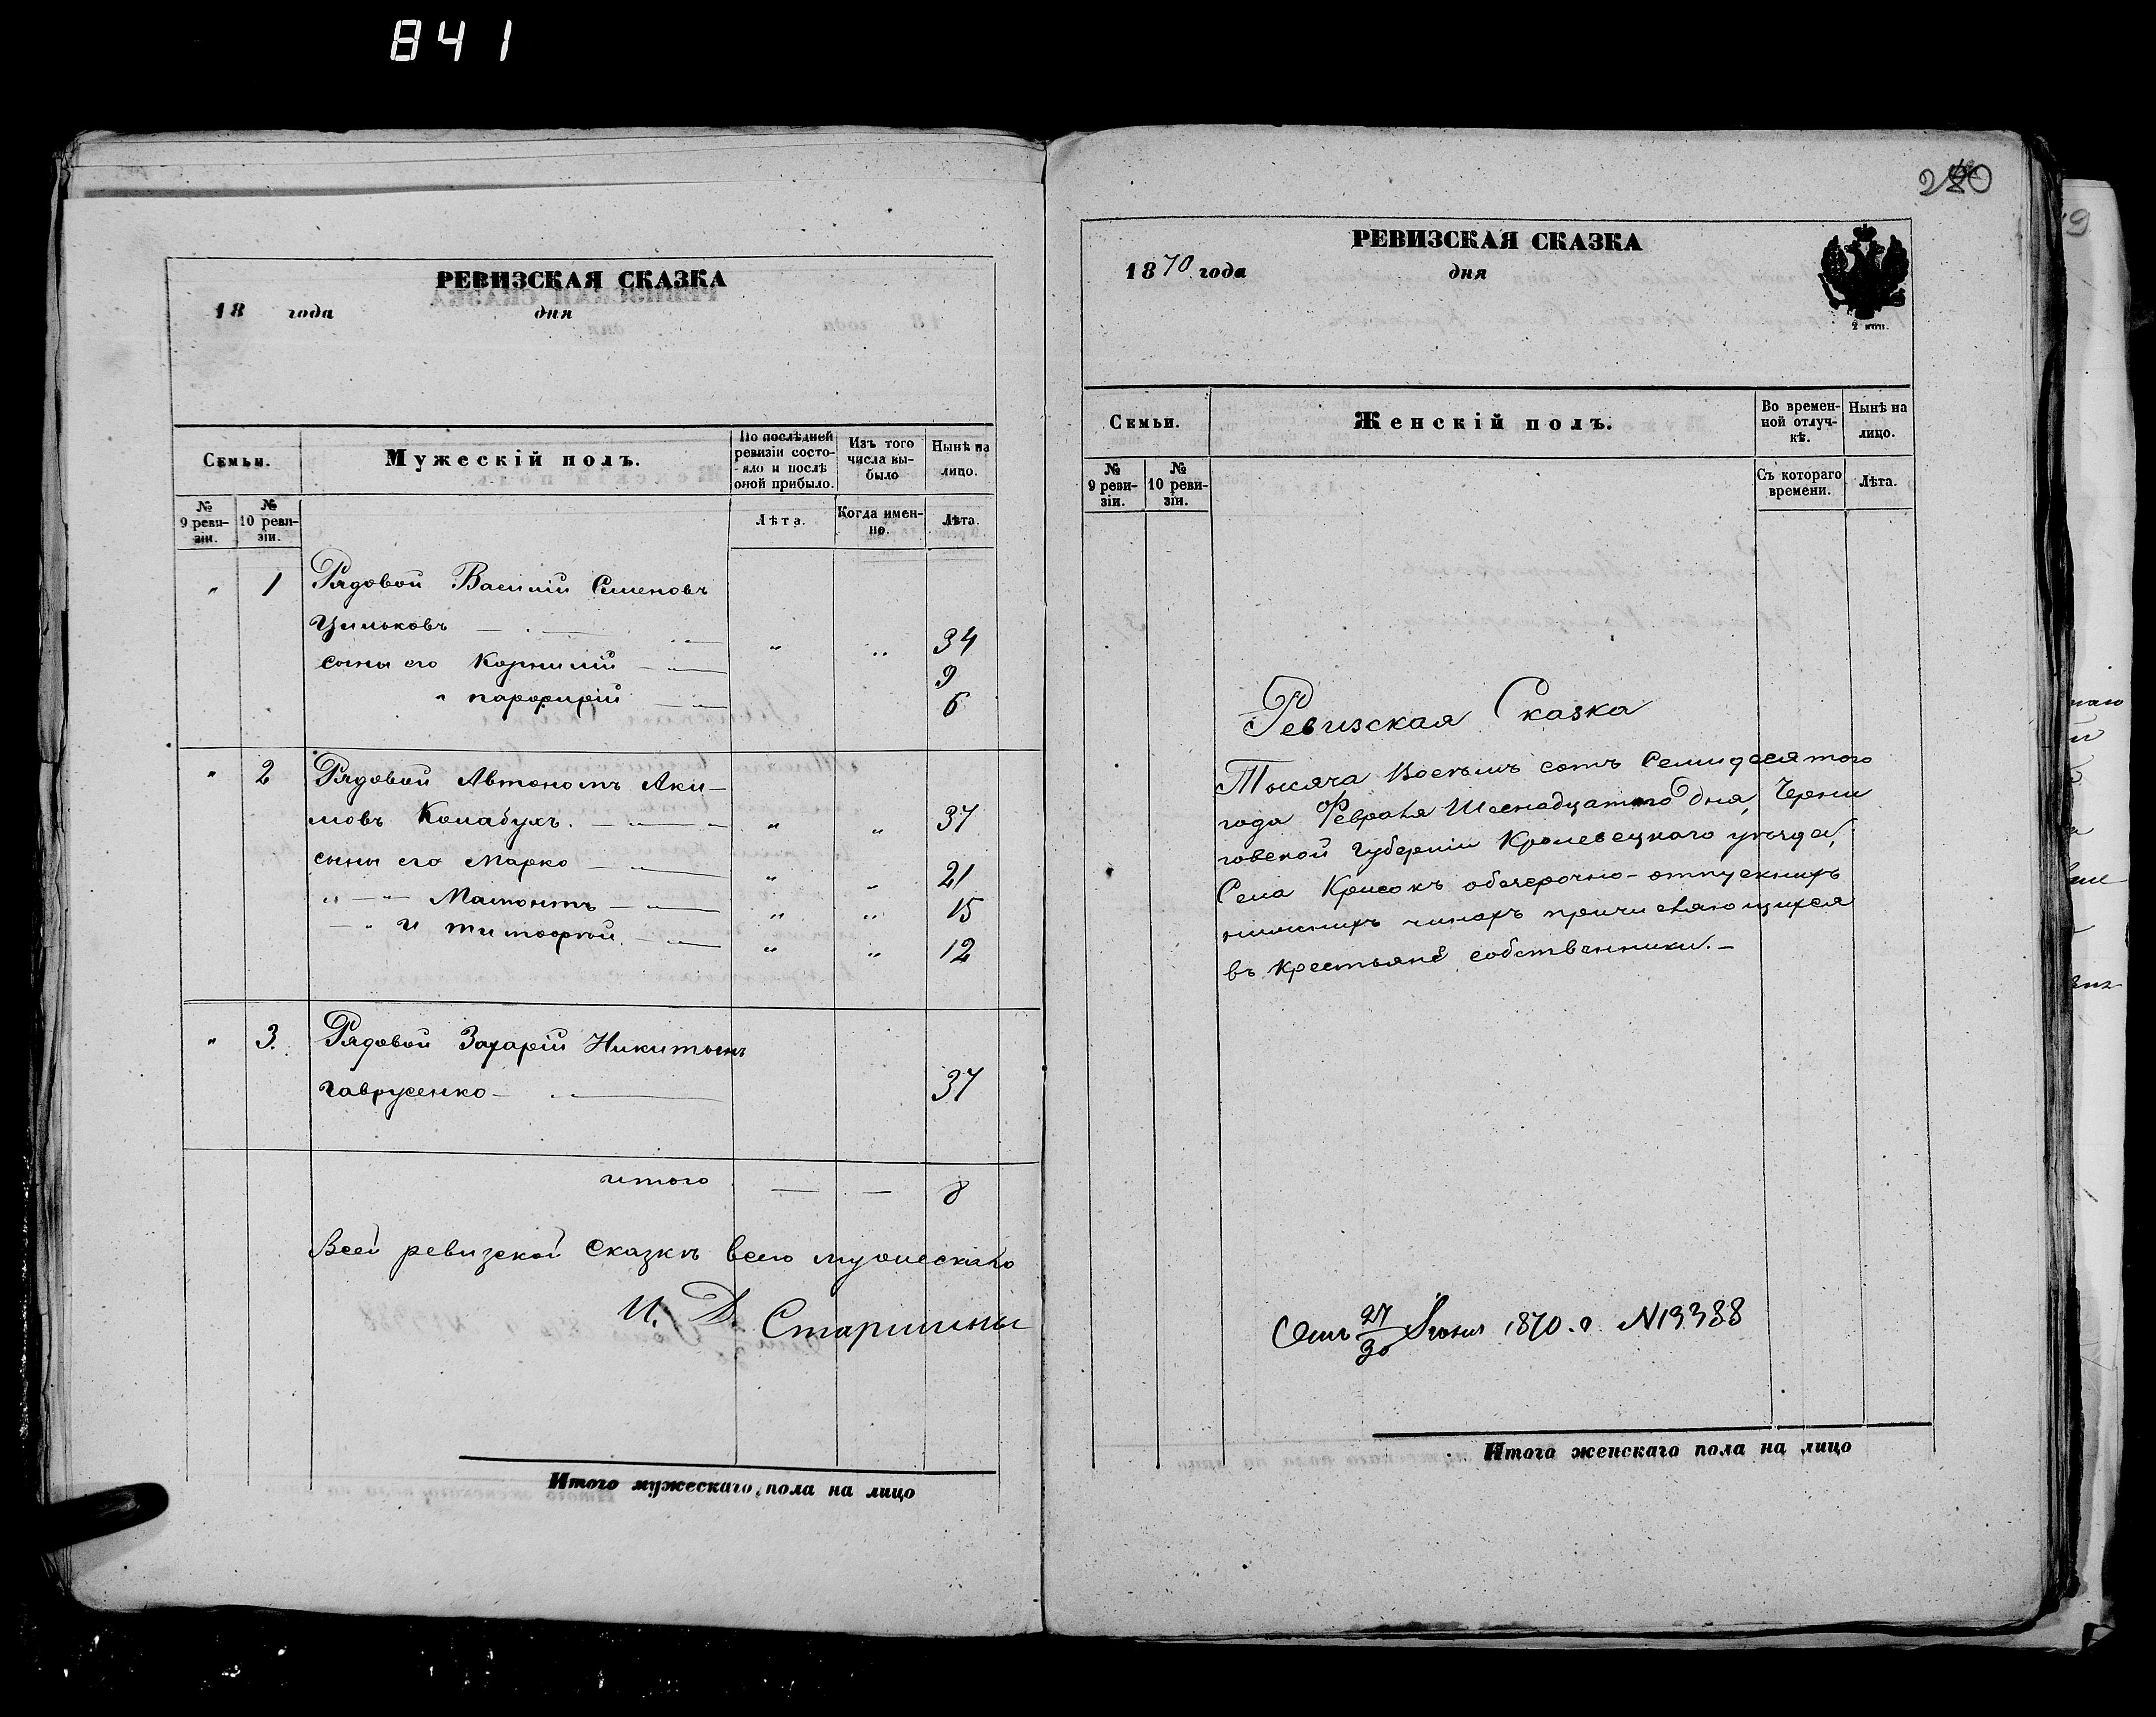 841
РЕВИЗСКАЯ СКАЗКА
18 года дня
Семьи.
Мужескій полъ.
По послѣдней ревизіи состояло и послѣ оной прибыло.
Изъ того числа выбыло
Нынѣ на лицо.
№ 9 ревизіи.
№ 10 ревизіи.
Лѣта.
Когда именно.
Лѣта.
" 1 Рядовой Василій Семеновъ
Цильковъ " " 34
сыны его Корнилій 9
" парфирій 6
" 2 Рядовой Автономъ Аки-
мовъ Колабухъ. " " 37
сыны его Марко " " 21
" " Мамонтъ " " 15
" и тимофѣй " " 12
" 3. Рядовой Захарій Никитинъ
гаврусенко 37
итого — — 8
Всей ревизской сказкѣ всего мужескаго
И. Д. Старшины
Итого мужескаго пола на лицо
280
РЕВИЗСКАЯ СКАЗКА
1870 года дня
2 коп.
Семьи.
Женскій полъ.
Во временной отлучкѣ.
Нынѣ на лицо.
№ 9 ревизіи.
№ 10 ревизіи.
Съ котораго времени.
Лѣта.
Ревизская Сказка
Тысяча Восемъ сотъ Семидесятого
года Февраля Шеснадцатого дня, Черни
говской Губерніи Кролевецкаго уѣзда,
Села Крисокъ обсерочно-отпускныхъ
нижнихъ чинахъ причисляющихся
въ крестьяне собственники. —
27/30 Іюня 1870. г N13388
Итого женскаго пола на лицо